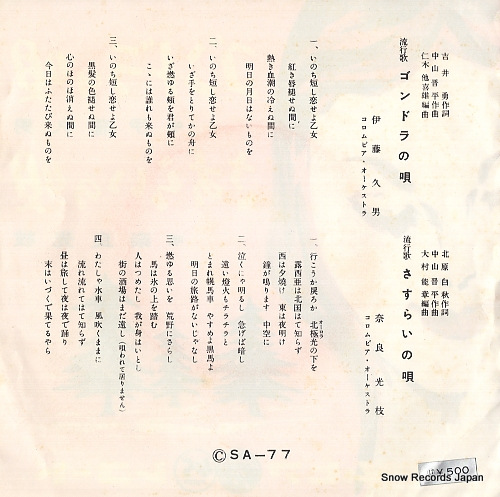 吉井勇作詞
中山晋平作曲
仁木他喜雄編曲
流行歌 ゴンドラの唄
伊藤久男
コロムビア・オーケストラ
一、いのち短し恋せよ乙女
紅き唇褪せぬ間に
熱き血潮の冷えぬ間に
明日の月日はないものを
二、いのち短し恋せよ乙女
いざ手をとりてかの舟に
いざ燃ゆる頬を君が頬に
こゝには誰れも来ぬものを
三、いのち短し恋せよ乙女
黒髪の色褪せぬ間に
心のほのほ消えぬ間に
今日はふたたび来ぬものを
北原白秋作詞
中山晋平作曲
大村能章編曲
流行歌 さすらいの唄
奈良光枝
コロムビア・オーケストラ
一、行こうか戻ろか 北極光の下を
露西亜は北国はて知らず
西は夕焼け 東は夜明け
鐘が鳴ります 中空に
二、泣くにゃ明るし 急げば暗し
遠い燈火もチラチラと
とまれ幌馬車 やすめよ黒馬よ
明日の旅路がないじゃなし
三、燃ゆる思いを 荒野にさらし
馬は氷の上を踏む
人はつめたし 我が身はいとし
街の酒場はまだ遠し(唄われて居りません)
四、わたしゃ水車 風吹くままに
流れ流れてはて知らず
昼は旅して夜は夜で踊り
末はいづくで果てるやら
ⒸSA-77
¥500
Snow Records Japan